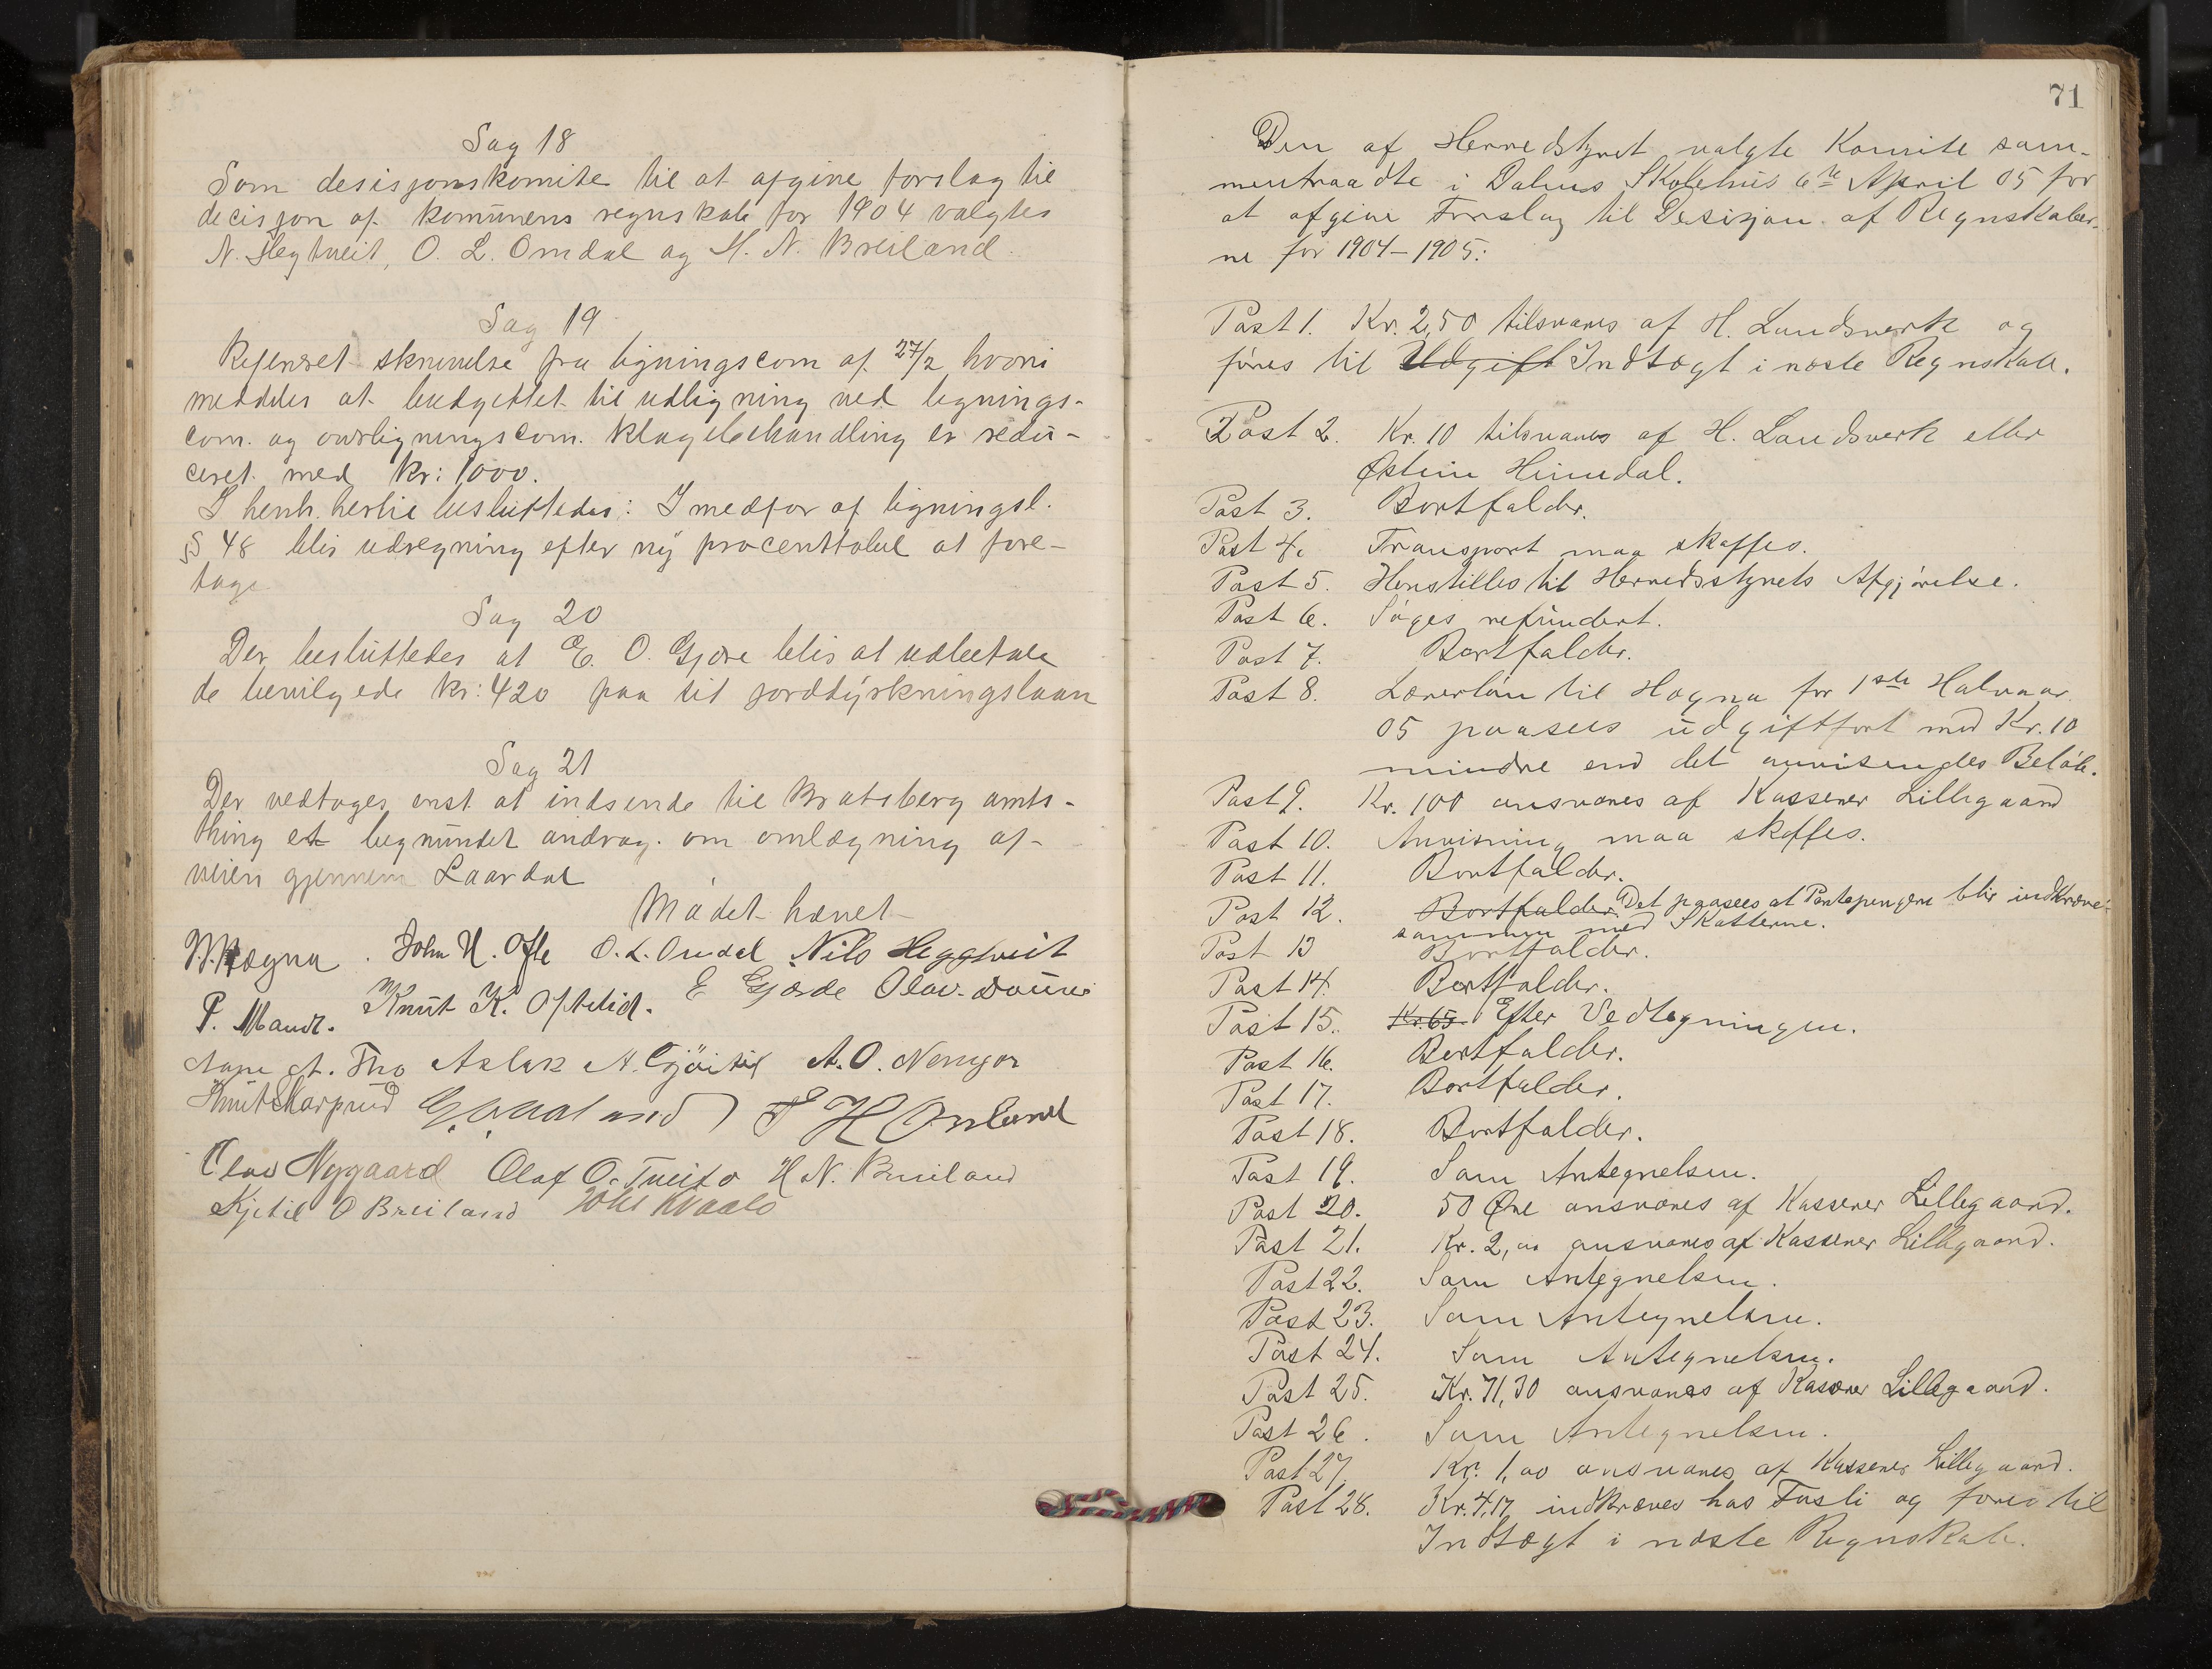 Sag 18
Som desisjonskomite til at afgive forslag til
decisjon af komunens regnskab for 1904 valgtes
N. Hegtveit, O. L. Omdal og H. N. Breiland.
Sag 19
Refereret skrivelse fra ligningscom af 27/2 hvori
meddeles at budgettet til udligning ved lignings-
com. og overligningscom. klagebehandling er redu-
ceret med kr: 1000.
I henh. hertil besluttedes: I medfør af ligningsl.
§ 48 blir udregning efter ny procenttabel at fore-
tage.
Sag 20
Der besluttedes at E. O. Gjøre blir at udbetale
de bevilgede kr: 420 paa sit jorddyrkningslaan
Sag 21
Der vedtoges enst at indsende til Bratsberg amts-
thing et begrundet andrag. om omlægning af
veien gjennem Laardal
Mødet hævet
John H. Ofte O. L. Omdal Nils Heggtveit
P. Mandt. Knut K. Oftelid. E Gjærde Olav
Aslak A. O.
Knut Skarprud
Olav Nygaard Olaf O. Tveito H N. Breiland
Kjetil O Breiland
71
Den af Herredstyret valgte Komite sam-
mentraadte i Dalens Skolehus 6te April 05 for
at afgive Forslag til Desisjon af Regnskaber-
ne for 1904-1905:
Post 1. Kr. 2,50 tilsvares af H. Landsverk og
føres til Udgift Indtægt i næste Regnskab.
Post 2. Kr. 10 tilsvares af H. Landsverk eller
Østein Heimdal.
Post 3. Bortfalder.
Post 4. Transport maa skaffes.
Post 5. Henstilles til Herredsstyrets Afgjørelse.
Post 6. Søges refundert.
Post 7. Bortfalder.
Post 8. Lærerløn til Høgna for 1ste Halvaar
05 paasees udgiftført med Kr. 10
mindre end det anvisendes Beløb.
Post 9. Kr. 100 ansvares af Kasserer Lillegaard
Post 10. Anvisning maa skaffes.
Post 11. Bortfalder.
Post 12. Bortfalder. Det paasees at Pantepengene blir indkræve-
sammen med Skatterne.
Post 13 Bortfalder.
Post 14. Bortfalder.
Post 15. Kr. 65. Efter Vedtegningen.
Post 16. Bortfalder.
Post 17. Bortfalder.
Post 18. Bortfalder.
Post 19. Som Antegnelsen.
Post 20. 50 Øre ansvares af Kasserer Lillegaard.
Post 21. Kr. 2,00 ansvares af Kasserer Lillegaard.
Post 22. Som Antegnelsen.
Post 23. Som Antegnelsen.
Post 24. Som Antegnelsen.
Post 25. Kr. 71,30 ansvares af Kasserer Lillegaard.
Post 26. Som Antegnelsen.
Post 27 Kr. 1,00 ansvares af Kasserer Lillegaard.
Post 28. Kr. 4,17 indkræves hos Fosli og føres til
Indtægt i næste Regnskab.